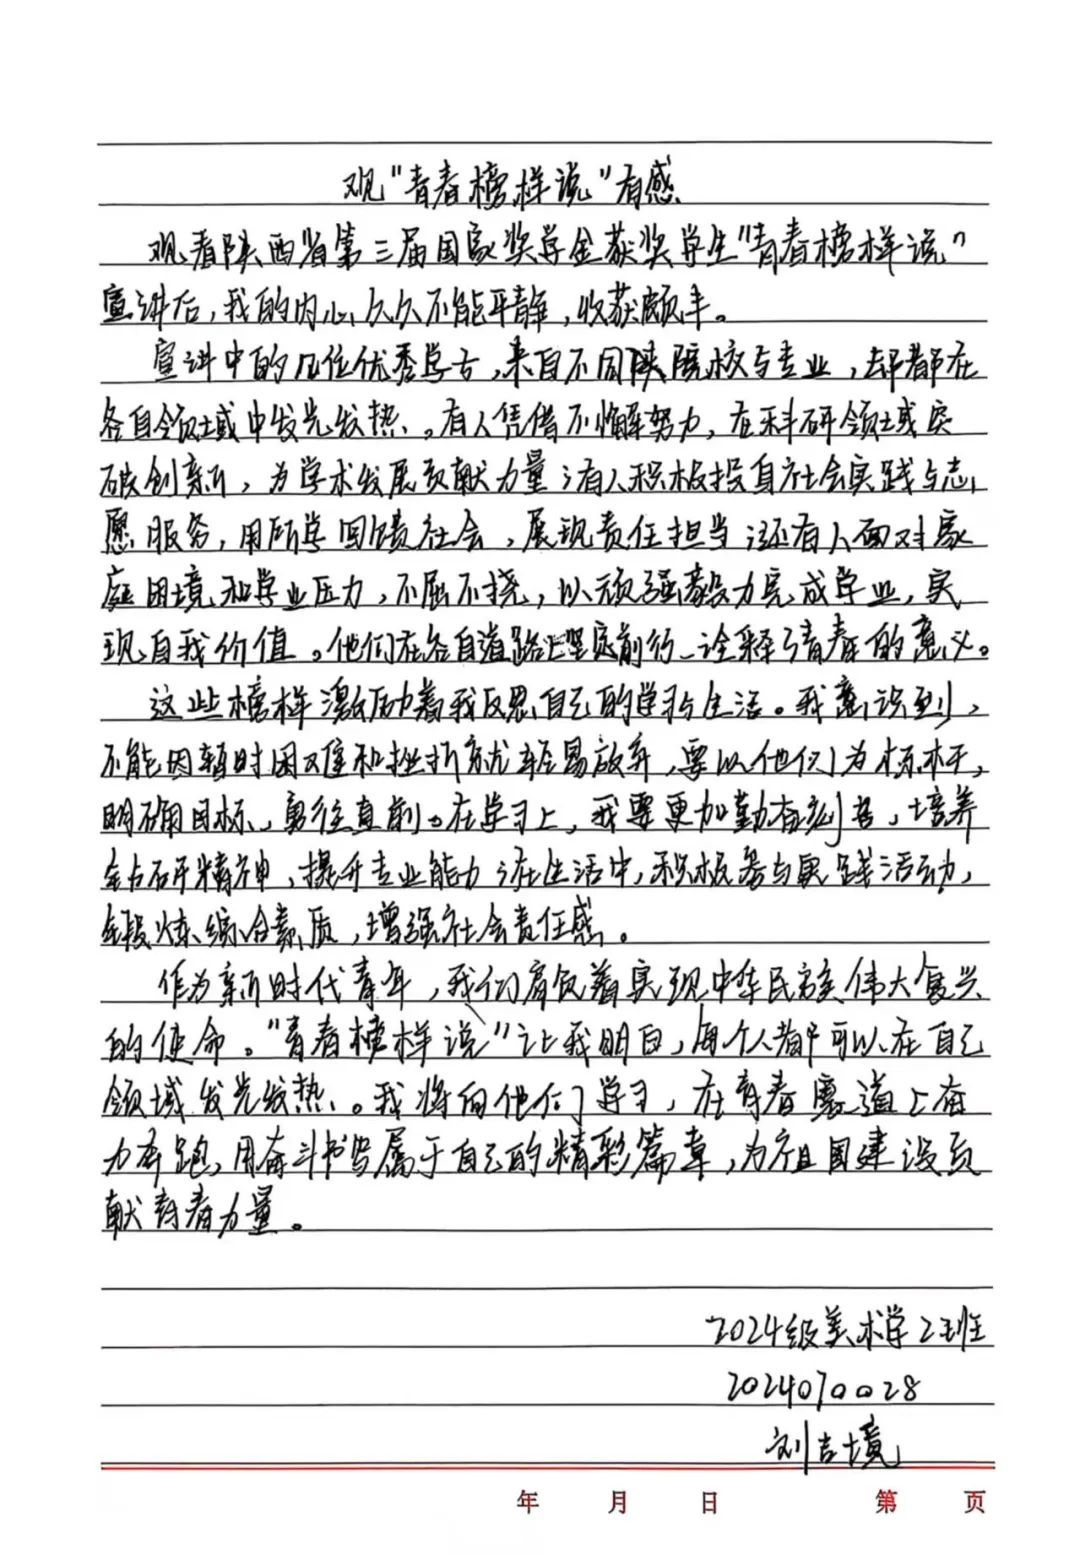 观“青春榜样说”有感
观看陕西省第三届国家奖学金获奖学生“青春榜样说”
宣讲后，我的内心久久不能平静，收获颇丰。
宣讲中的几位优秀学子，来自不同陕院校与专业，却都在
各自领域中发光发热。有人凭借不懈努力，在科研领域突
破创新，为学术发展贡献力量；有人积极投身社会实践与志
愿服务，用所学回馈社会，展现责任担当；还有人面对家
庭困境和学业压力，不屈不挠，以顽强毅力完成学业，实
现自我价值。他们在各自道路上坚定前行，诠释了青春的意义。
这些榜样激励着我反思自己的学习与生活。我意识到，
不能因暂时困难和挫折就轻易放弃，要以他们为标杆，
明确目标、勇往直前。在学习上，我要更加勤奋刻苦，培养
钻研精神，提升专业能力；在生活中，积极参与实践活动，
锻炼综合素质，增强社会责任感。
作为新时代青年，我们肩负着实现中华民族伟大复兴
的使命。“青春榜样说”让我明白，每个人都可以在自己
领域发光发热。我将向他们学习，在青春赛道上奋
力奔跑，用奋斗书写属于自己的精彩篇章，为祖国建设贡
献青春力量。
2024级美术学2班
2024070028
刘吉境
年 月 日 第 页